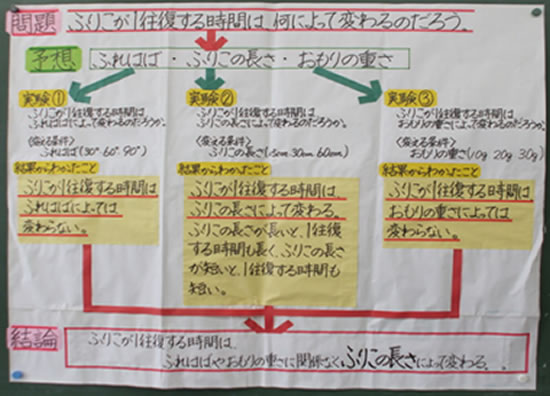 問題 ふりこが1往復する時間は、何によって変わるのだろう。
予想 ふれはば・ふりこの長さ・おもりの重さ
実験①
ふりこが1往復する時間は
ふれはばによって変わるのだろうか。
〈変える条件〉
ふれはば(30° 60° 90°)
結果からわかったこと
ふりこが1往復する時間は
ふれはばによっては
変わらない。
実験②
ふりこが1往復する時間は
ふりこの長さによって変わるのだろうか。
〈変える条件〉
ふりこの長さ(15cm 30cm 60cm)
結果からわかったこと
ふりこが1往復する時間は、
ふりこの長さによって変わる。
ふりこの長さが長いと、1往復
する時間も長く、ふりこの長さ
が短いと、1往復する時間も
短い。
実験③
ふりこが1往復する時間は
おもりの重さによって変わるのだろうか。
〈変える条件〉
おもりの重さ(10g 20g 30g)
結果からわかったこと
ふりこが1往復する時間は
おもりの重さによっては
変わらない。
結論 ふりこが1往復する時間は、
ふれはばやおもりの重さに関係なくふりこの長さによって変わる。